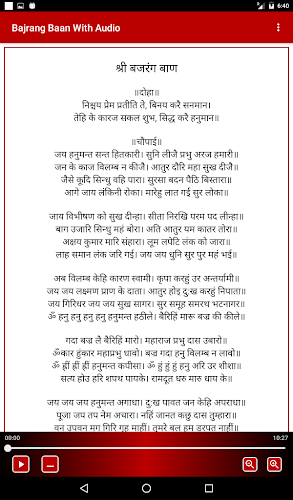 6:40
Bajrang Baan With Audio
श्री बजरंग बाण
॥दोहा॥
निश्चय प्रेम प्रतीति ते, बिनय करै सनमान।
तेहि के कारज सकल शुभ, सिद्ध करै हनुमान॥
॥चौपाई॥
जय हनुमन्त सन्त हितकारी। सुनि लीजै प्रभु अरज हमारी॥
जन के काज विलम्ब न कीजै। आतुर दौरि महा सुख दीजै॥
जैसे कूदि सिन्धु वहि पारा। सुरसा बदन पैठि बिस्तारा॥
आगे जाय लंकिनी रोका। मारेहु लात गई सुर लोका॥
जाय विभीषण को सुख दीन्हा। सीता निरखि परम पद लीन्हा॥
बाग उजारि सिन्धु महं बोरा। अति आतुर यम कातर तोरा॥
अक्षय कुमार मारि संहारा। लूम लपेटि लंक को जारा॥
लाह समान लंक जरि गई। जय जय धुनि सुर पुर महं भई॥
अब विलम्ब केहि कारण स्वामी। कृपा करहुं उर अन्तर्यामी॥
जय जय लक्ष्मण प्राण के दाता। आतुर होइ दुःख करहुं निपाता॥
जय गिरिधर जय जय सुख सागर। सुर समूह समरथ भटनागर॥
ॐ हनु हनु हनु हनु हनुमन्त हठीले। बैरिहिं मारू बज्र की कीले॥
गदा बज्र लै बैरिहिं मारो। महाराज प्रभु दास उबारो॥
ॐकार हुंकार महाप्रभु धावो। बज्र गदा हनु विलम्ब न लावो॥
ॐ ह्रीं ह्रीं ह्रीं हनुमन्त कपीसा। ॐ हुं हुं हुं हनु अरि उर शीशा॥
सत्य होउ हरि शपथ पायके। रामदूत धरु मारु धाय के॥
जय जय जय हनुमन्त अगाधा। दुःख पावत जन केहि अपराधा॥
पूजा जप तप नेम अचारा। नहिं जानत कछु दास तुम्हारा॥
वन उपवन मग गिरि गृह माहीं। तुमरे बल हम डरपत नाहीं॥
00:00
10:27